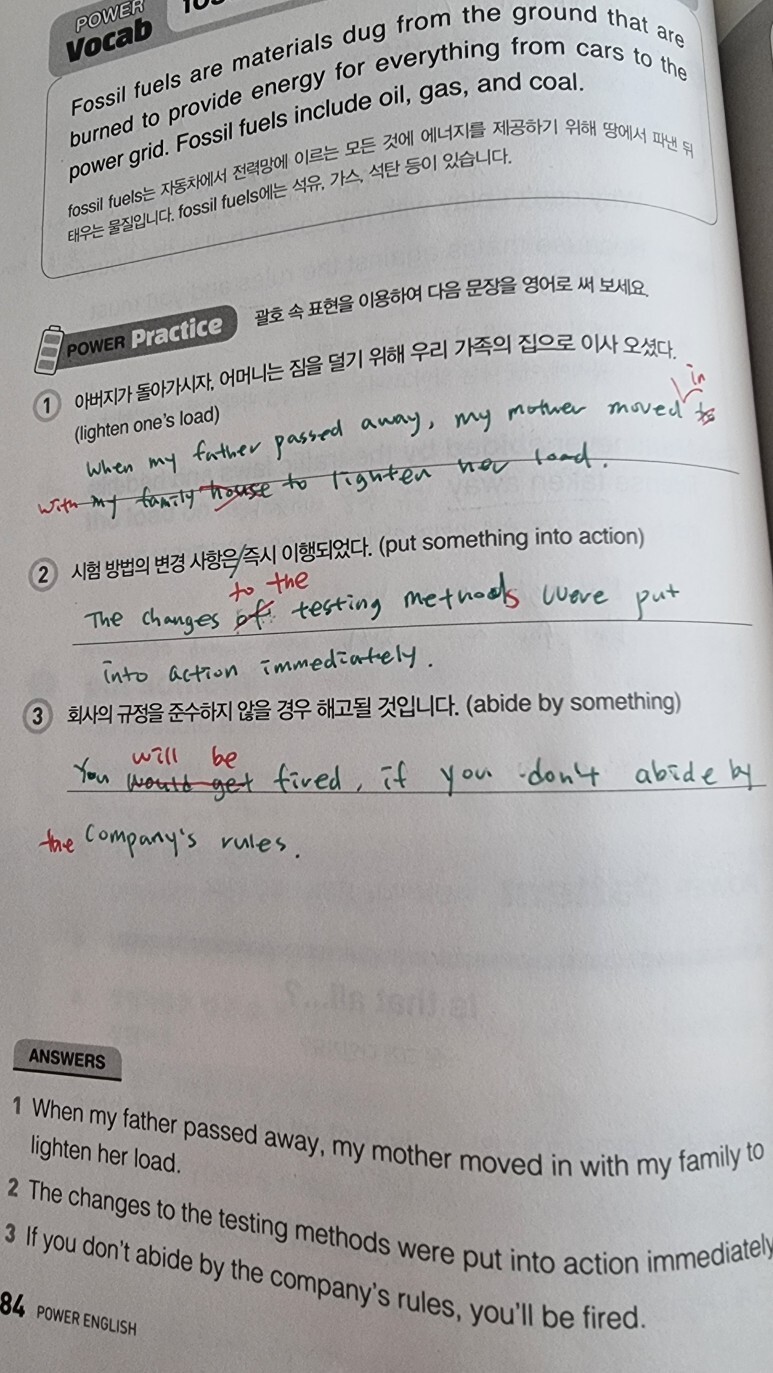 POWER
Vocab
Fossil fuels are materials dug from the ground that are
burned to provide energy for everything from cars to the
power grid. Fossil fuels include oil, gas, and coal.
fossil fuels는 자동차에서 전력망에 이르는 모든 것에 에너지를 제공하기 위해 땅에서 파낸 뒤
태우는 물질입니다. fossil fuels에는 석유, 가스, 석탄 등이 있습니다.
POWER Practice 괄호 속 표현을 이용하여 다음 문장을 영어로 써 보세요.
1 아버지가 돌아가시자, 어머니는 짐을 덜기 위해 우리 가족의 집으로 이사 오셨다.
(lighten one's load)
in
When my father passed away, my mother moved to
with my family house to lighten her load.
2 시험 방법의 변경 사항은/즉시 이행되었다. (put something into action)
to the
The changes of testing methods were put
into action immediately.
3 회사의 규정을 준수하지 않을 경우 해고될 것입니다. (abide by something)
will be
You would get fired, if you don't abide by
the company's rules.
Is that all...?
ANSWERS
1 When my father passed away, my mother moved in with my family to
lighten her load.
2 The changes to the testing methods were put into action immediately
3 If you don't abide by the company's rules, you'll be fired.
84 POWER ENGLISH